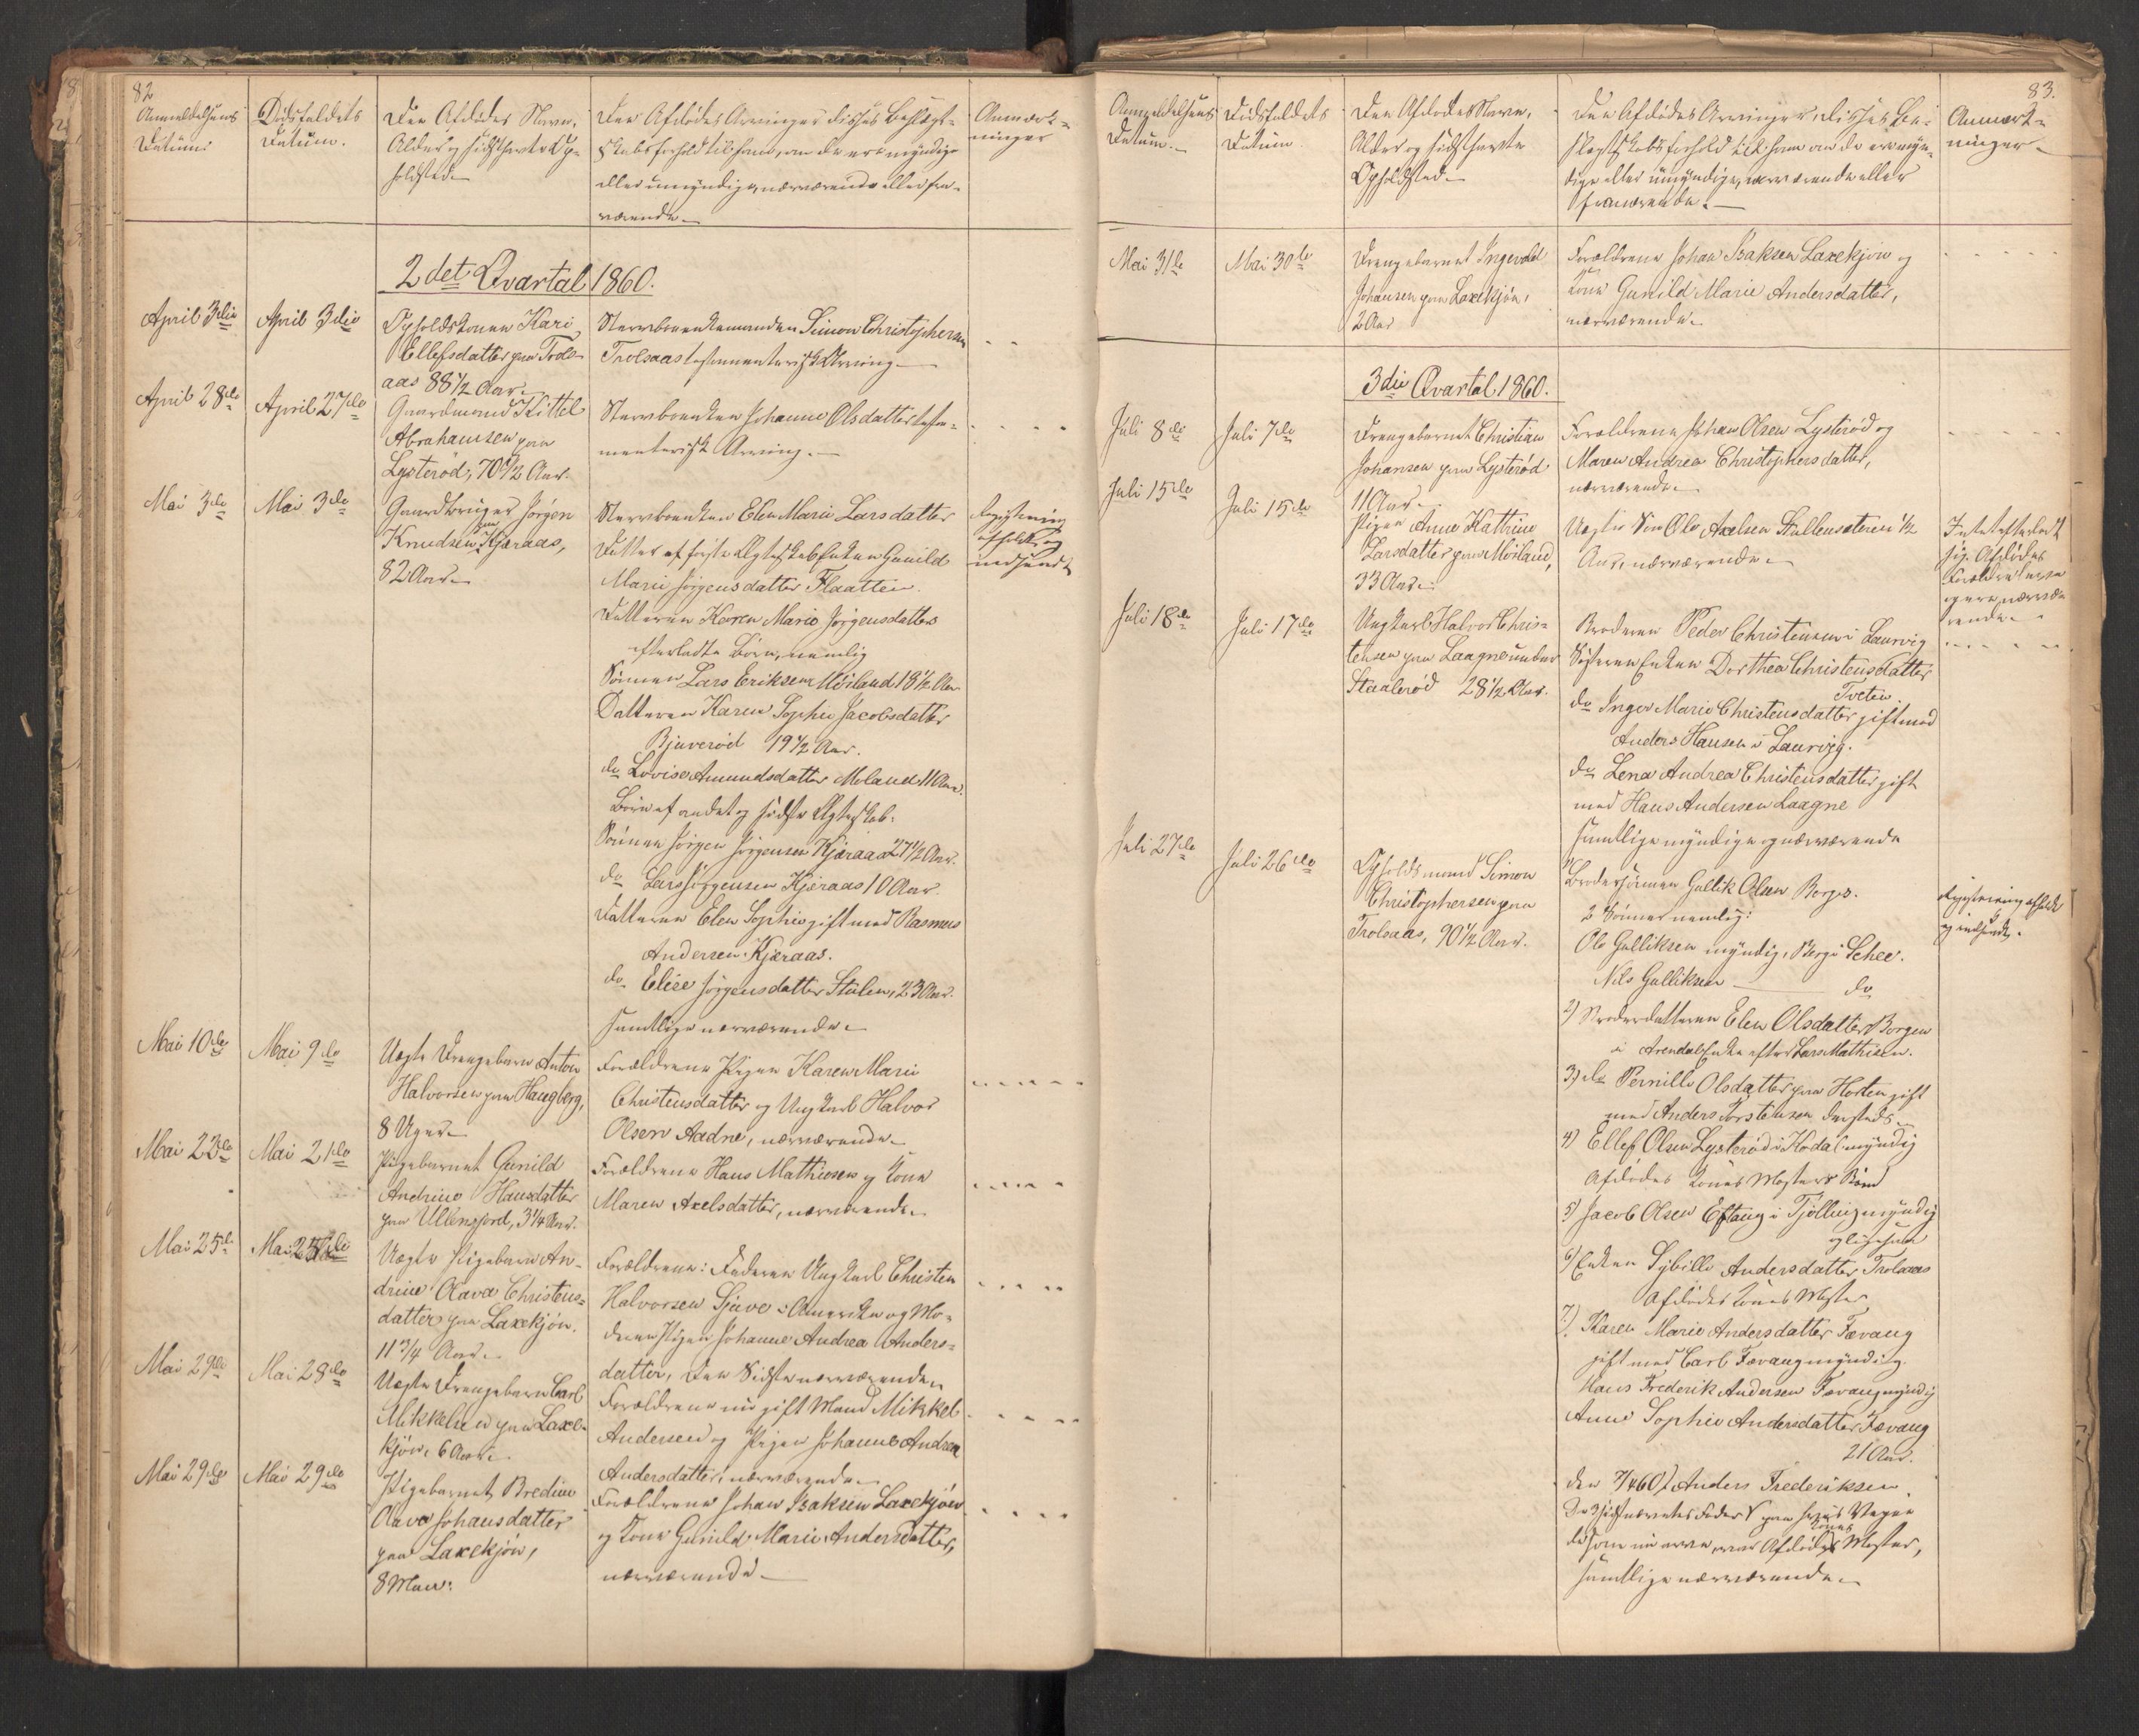 82
Anmeldelsens
Datum.
Dödsfaldets
Datum.
Den Afdödes Navn,
Alder og sidsthavte Op-
holdsted.
Den Afdödes Arvinger disses Beslægt-
skabsforhold til ham, om de ere myndige
eller umyndige, nærværende eller fra-
værende.
Anmærk-
ninger
2det Qvartal 1860.
April 3die
April 3die
Opholdskonen Kari
Ellefsdatter paa Trols-
aas 88 1/2 Aar.
Stervboenkemanden Simon Christophersen
Trolsaas testamentarisk Arving.
April 28de
April 27de
Gaardmand Kittel
Abrahamsen paa
Lysteröd, 70 1/2 Aar.
Stervboenken Johanne Olsdatter testa-
mentarisk Arving.
Mai 3de
Mai 3de
Gaardbruger Jörgen
Knudsen paa Kjæraas,
82 Aar.
Stervboenken Elen Marie Larsdatter
Datter af förste Ægteskab Enken Gunild
Marie Jörgensdatter Flaatten.
Datteren Karen Marie Jörgensdatters
efterladte Börn, nemlig
Sönnen Lars Eriksen Möiland 18 1/2 Aar
Datteren Karen Sophie Jacobsdatter
Bjuveröd 19 1/2 Aar.
do Lovise Amundsdatter Moland 11 Aar.
Börn af andet og sidste Ægteskab:
Sönnen Jörgen Jörgensen Kjæraas 27 1/2 Aar.
do Lars Jörgensen Kjæraas 10 Aar
Datteren Elen Sophie gift med Rasmus
Andersen Kjæraas.
do Elise Jörgensdatter Stulen, 23 Aar.
samtlige nærværende.
Registrering
afholdt og
indsendt
Mai 10de
Mai 9de
Uægte Drengebarn Anton
Halvorsen paa Haugberg,
8 Uger.
Forældrene Pigen Karen Marie
Christensdatter og Ungkarl Halvor
Olsen Aadne, nærværende.
Mai 23de
Mai 21de
Pigebarnet Gunild
Andrine Hansdatter
paa Ullensfjord, 3 1/4 Aar.
Forældrene Hans Mathiesen og Kone
Maren Axelsdatter, nærværende.
Mai 25de
Mai
Uægte Pigebarn An-
drine Olava Christens-
datter paa Laxekjön.
11 3/4 Aar.
Forældrene: Faderen Ungkarl Christen
Halvorsen Sjuve i Amerika og Mo-
deren Pigen Johanne Andrea Anders-
datter, den Sidste nærværende.
Mai 29de
Mai 28de
Uægte Drengebarn Carl
Mikkelsen paa Laxe-
kjön, 6 Aar.
Forældrene nu gift Mand Mikkel
Andersen og Pigen Johanne Andrea
Andersdatter, nærværende.
Mai 29de
Mai 29de
Pigebarnet Bredine
Olava Johansdatter
paa Laxekjön,
8 Maan:
Forældrene Johan Isaksen Laxekjön
og Kone Gunild Marie Andersdatter,
nærværende.
83.
Anmeldelsens
Datum.
Dödsfaldets
Datum.
Den Afdödes Navn,
Alder og sidsthavte
Opholdsted.
Den Afdödes Arvinger, disses Be-
slægtskabsforhold til ham om de ere myn-
dige eller umyndige, nærværende eller
fraværende.
Anmærk-
ninger.
Mai 31te
Mai 30te
Drengebarnet Ingevald
Johansen paa Laxekjön,
2 Aar
Forældrene Johan Isaksen Laxekjön og
Kone Gunild Marie Andersdatter,
nærværende.
3die Qvartal 1860.
Juli 8de
Juli 7de
Drengebarnet Christian
Johansen paa Lysteröd
11 Aar.
Forældrene Johan Olsen Lysteröd og
Maren Andrea Christophersdatter,
nærværende.
Juli 15de
Juli 15de
Pigen Anne Kathrine
Larsdatter paa Möiland,
33 Aar.
Uægte Sön Ole Axelsen Stullensteren 1/2
Aar, nærværende.
Intet efterladt
sig. Afdödes
Forældre leve
og ere nærvæ-
rende.
Juli 18de
Juli 17de
Ungkarl Halvor Chris-
tensen paa Laagne under
Staaleröd 28 1/2 Aar.
Broderen Peder Christensen i Laurvig
Sösteren Enken Dorthea Christensdatter
Tveten.
do Inger Marie Christensdatter gift med
Anders Hansen i Laurvig.
do Lena Andrea Christensdatter gift
med Hans Andersen Laagne
samtlige myndige og nærværende
Juli 27de
Juli 26de
Opholdsmand Simon
Christophersen paa
Trolsaas, 90 1/2 Aar.
1) Brodersönnen Gullik Olsen Borges.
2 Sönner nemlig:
Ole Gulliksen myndig, Berge Schee.
Nils Gulliksen do
2) Broderdatteren Elen Olsdatter Borgen
i Arendal Enke efter Lars Mathisen.
3) do Pernille Olsdatter paa Horten gift
med Anders Torstensen dersteds.
4) Ellef Olsen Lysteröd i Kodal myndig
Afdödes Kones Mosters Börn
5) Jacob Olsen Eftang i Tjölling myndig
og ligesaa
6) Enken Sybille Andersdatter Trolsaas
Afdödes Kones Moster
7) Karen Marie Andersdatter Fævang
gift med Carl Fævang myndig.
Hans Frederik Andersen Fævang myndig
Anne Sophie Andersdatter Fævang
21 Aar.
Anders Frederiksen
De 3 sidstnævntes Fader
Afdödes Kones Moster,
samtlige nærværende.
Registrering afholdt
og indsendt.